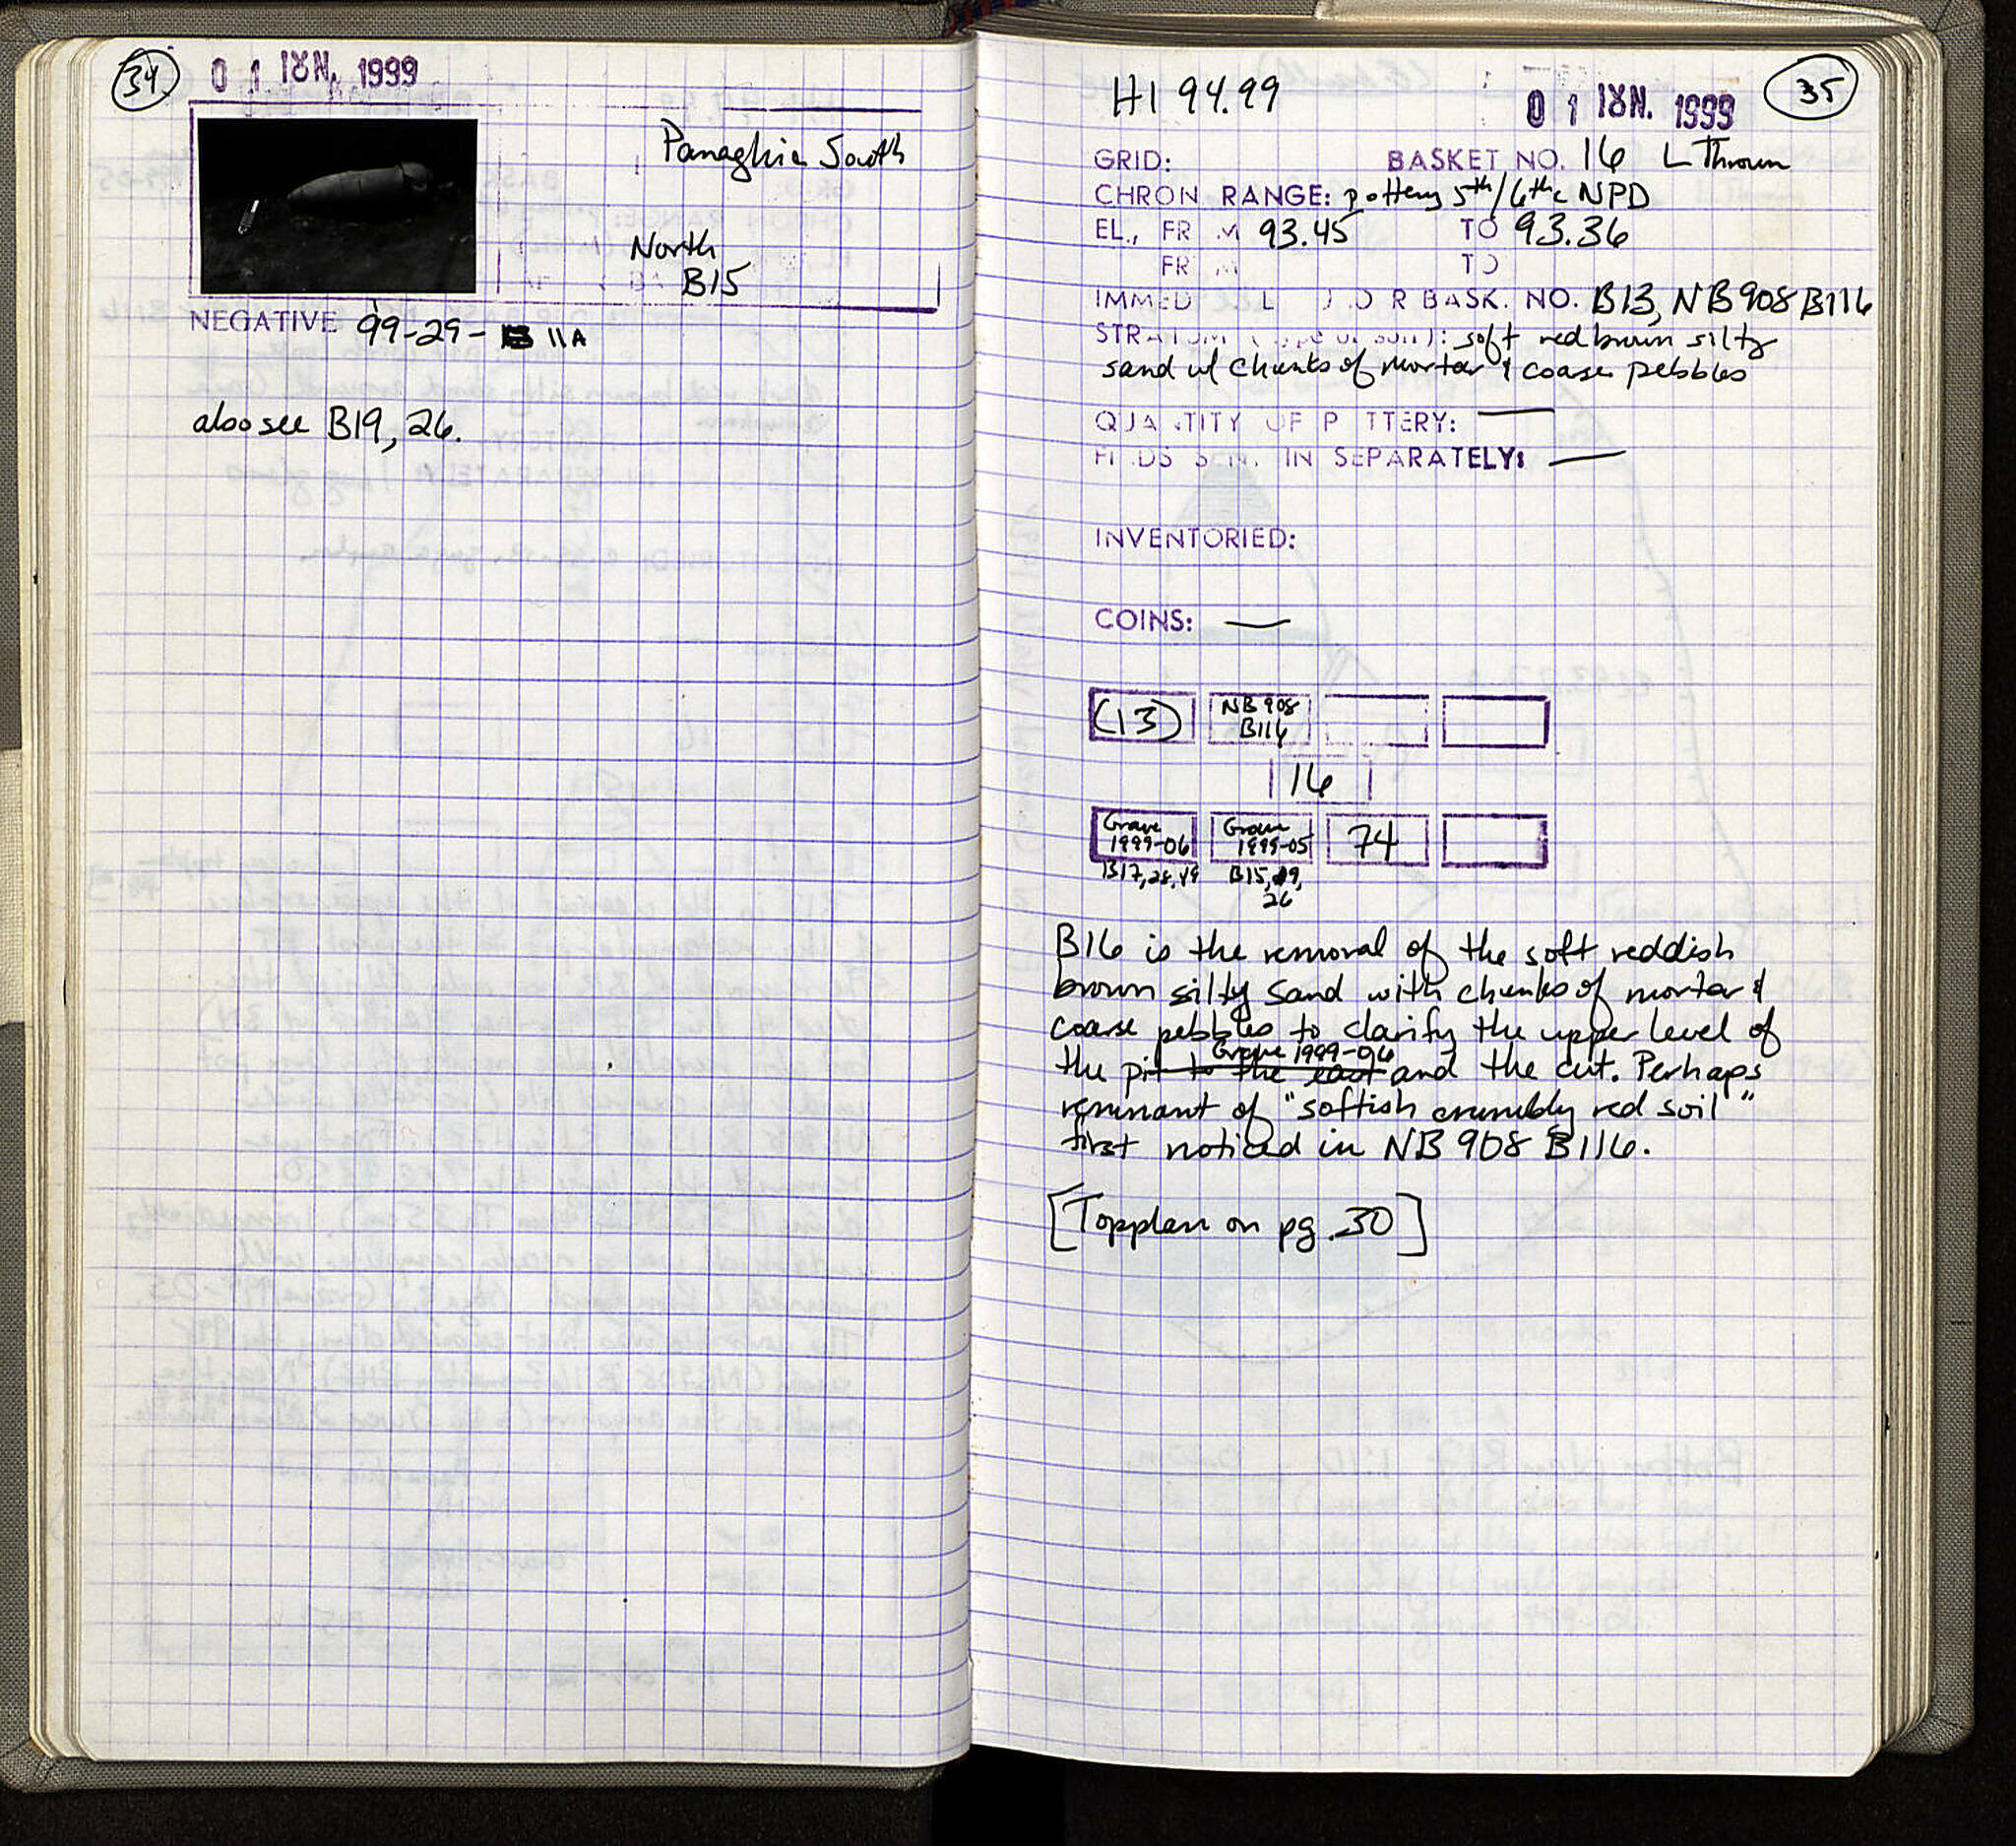 34
01 ΙΟΥΝ. 1999
Panaghia South
North
B15
NEGATIVE 99-29- 11A
also see B19, 26.
H1 94.99
01 ΙΟΥΝ. 1999
35
GRID: BASKET NO. 16 L Thrown
CHRON RANGE: pottery 5th/6th c NPD
EL., FR M 93.45 TO 93.36
FR M TO
IMMED L BASK. NO. B13, NB 908 B116
soft red brown silty
sand w/ chunks of mortar & coase pebbles
QUA TITY OF P TTERY: —
FI DS SEN IN SEPARATELY: —
INVENTORIED:
COINS: —
(13) NB 908
B116
16
Grave
1999-06 Grave
1999-05 74
B17, 28, 49 B15, 19,
26
B16 is the removal of the soft reddish
brown silty sand with chunks of mortar &
coarse pebbles to clarify the upper level of
Grave 1999-06
the pit to the east and the cut. Perhaps
remnant of "softish crumbly red soil"
first noticed in NB 908 B116.
[Topplan on pg. 30]